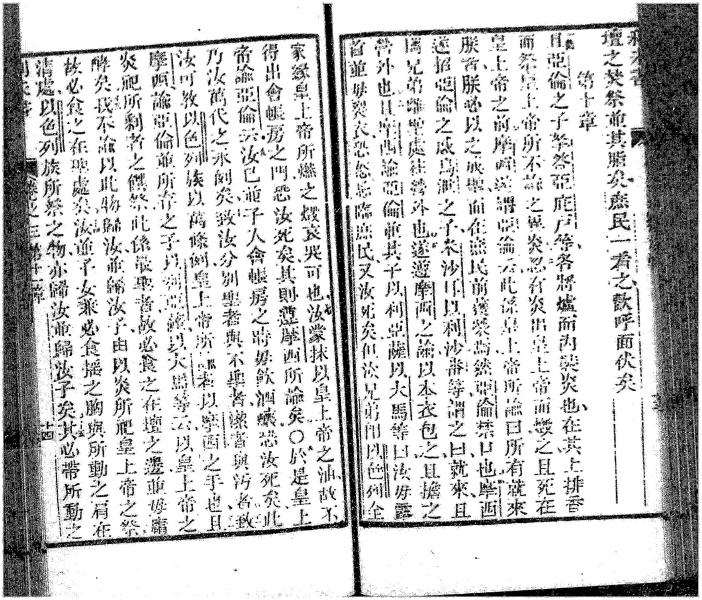 壇之焚祭並其脂矣庶民一看之歡呼面伏矣
第十章
且亞倫之子拿答亞庇戶等各將爐而內裝炎也在其上排香
而祭皇上帝所不諭之異炎忽有炎出皇上帝而燬之且死在
皇上帝之前摩西遂謂亞倫云此係皇上帝所諭曰所有就來
朕者朕必以之成聖而在庶民前獲榮焉然亞倫禁口也摩西
遂招亞倫之叔烏泄之子米沙耳以利沙番等謂之曰就來且
攜兄弟離聖處往營外也遂遵摩西之諭以本衣包之且擔之
營外也且摩西諭亞倫並其子以利亞薩以大馬等曰汝毋露
首並毋裂衣恐怒臨庶民又汝死矣但汝兄弟即以色列全
家緣皇上帝所燃之燬哀哭可也汝蒙抹以皇上帝之油故不
得出會帳房之門恐汝死矣其則遵摩西所諭矣〇於是皇上
帝諭亞倫云汝也並子入會帳房之時毋飲酒釀恐汝死矣此
乃汝萬代之永例矣致汝分別聖者與不聖者潔者與汚者致
汝可教以色列族以萬條例皇上帝所著以摩西之手也且
摩西諭亞倫並所存之子以利亞薩以大馬等云以皇上帝之
炎祀所剩者之饌祭此係最聖者故必食之在壇之邊並毋膳
酵矣我不諭以此物歸汝並歸汝子由以炎所祀皇上帝之祭
故必食之在聖處矣汝並子女兼必食搖之胸與所動之肩在
清處以色列族所祭之物亦歸汝並歸汝子矣其必帶所動之